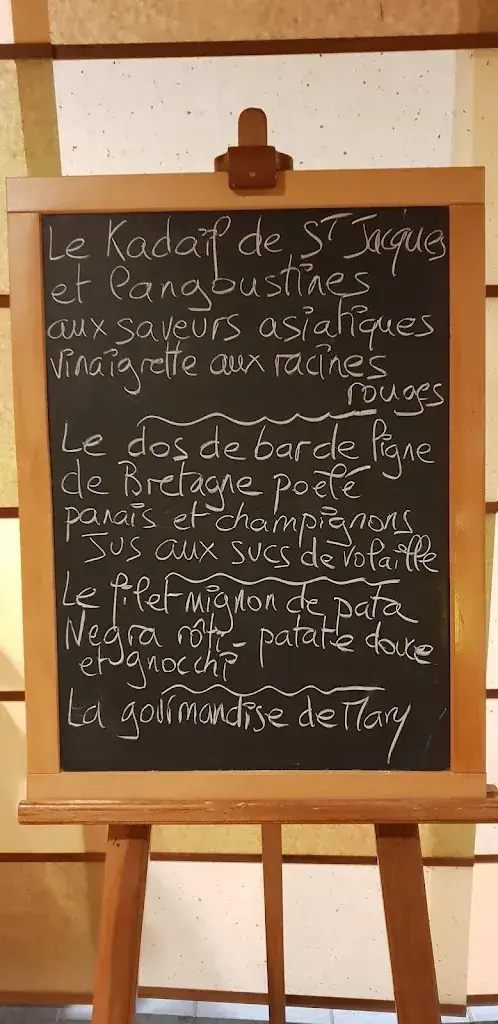 Le Kadaïf de ST Jacques
et langoustines
aux saveurs asiatiques
vinaigrette aux racines
rouges
Le dos de bar de ligne
de Bretagne poêlé
panais et champignons
Jus aux sucs de volaille
Le filet mignon de pata
Negra rôti - patate douce
et gnocchi
La gourmandise de Mary